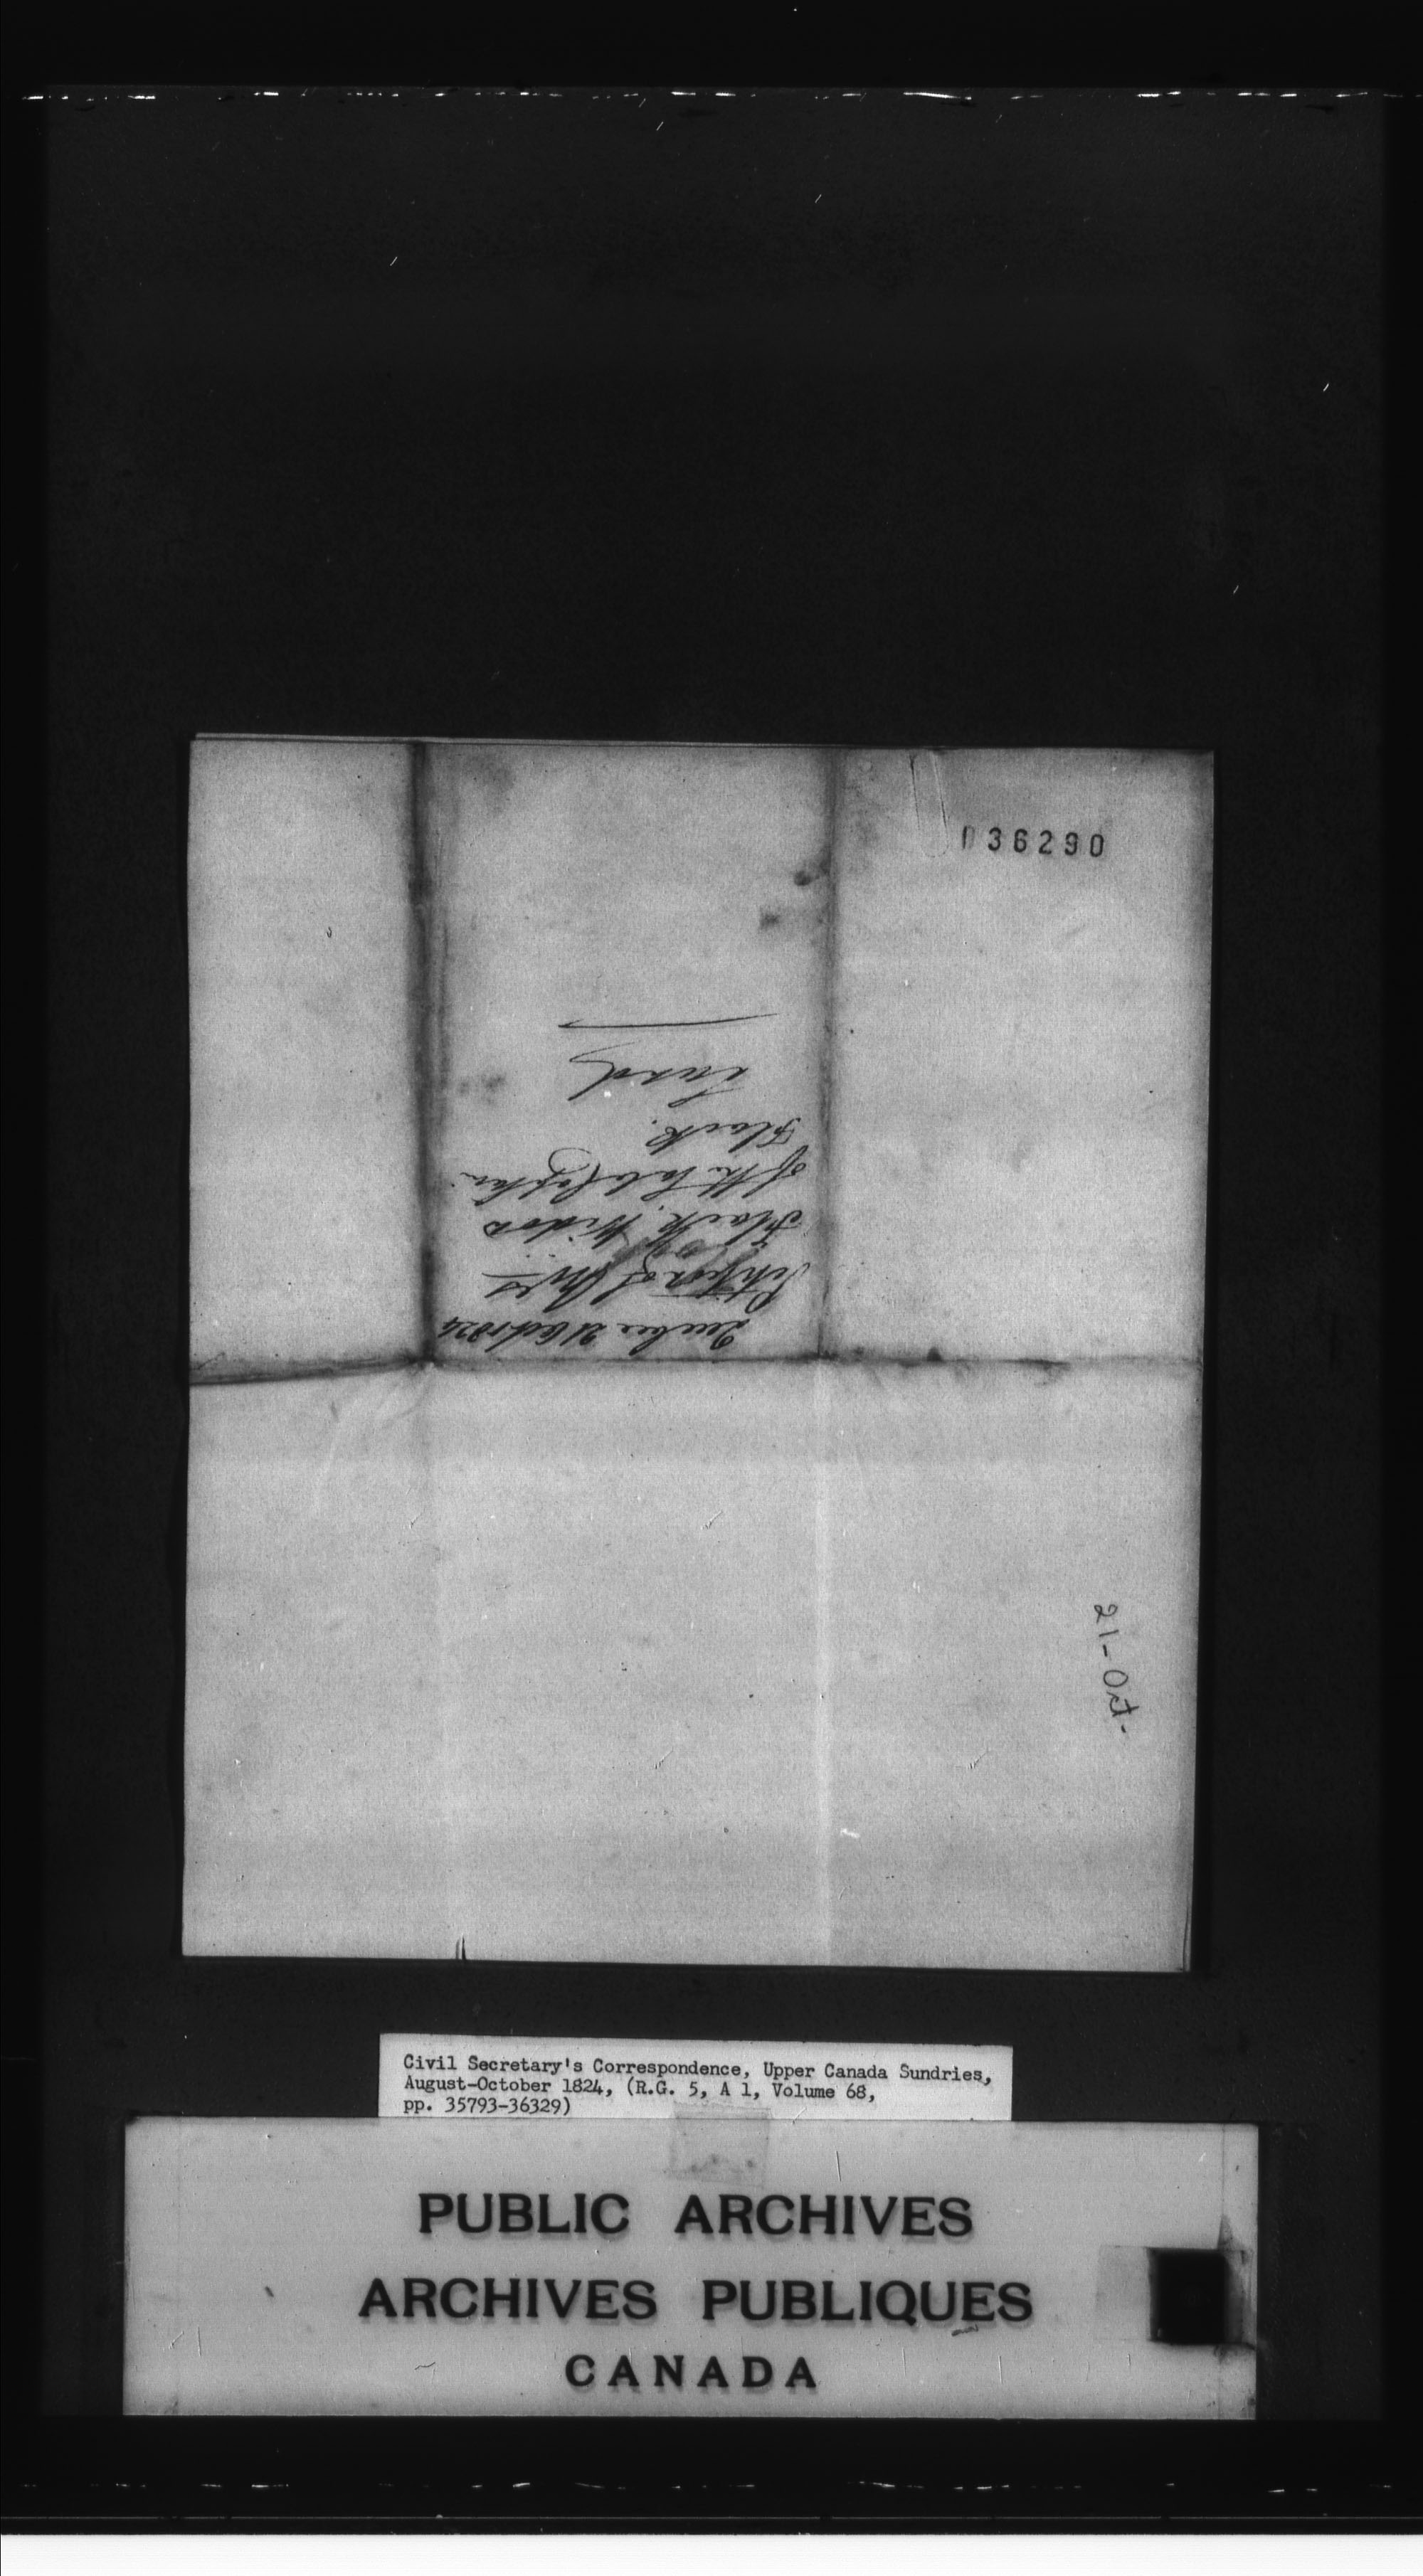 036290
Quebec 21 Oct 1824
Petition of Mrs
Black, Widow
of the late Captain
Black.
Land
21-Oct-
Civil Secretary's Correspondence, Upper Canada Sundries,
August-October 1824, (R.G. 5, A 1, Volume 68,
pp. 35793-36329)
PUBLIC ARCHIVES
ARCHIVES PUBLIQUES
CANADA